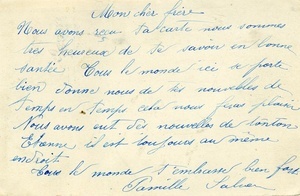 Mon cher frère
Nous avons reçu ta carte nous sommes
très heureux de te savoir en bonne
santé Tous le monde ici se porte
bien donne nous de tes nouvelles de
temps en temps cela nous feras plaisir
Nous avons eut des nouvelles de tonton
Etienne il est toujours au même
endroit
Tous le monde t'embrasse bien fort
Famille